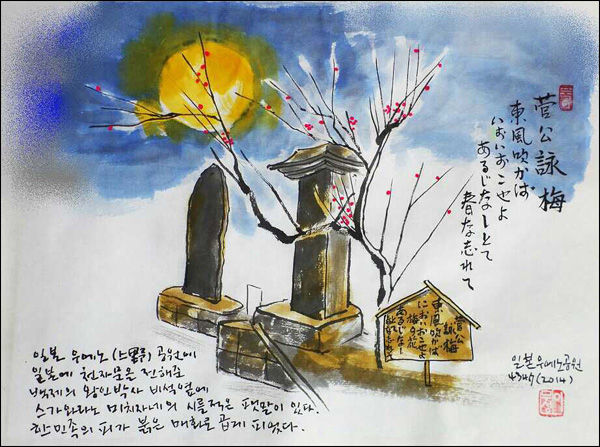 菅公詠梅
東風吹かば
いおいおこせよ
あるじなしとて
春な忘れて
菅公
詠梅
東風吹かば
においおこせよ
梅の花
あるじなし
일본 우에노(上野) 공원에
일본에 천자문을 전해준
백제의 왕인박사 비석옆에
스가와라노 미치자네의 시를적은 팻말이 있다.
한민족의 피가 붉은 매화로 곱게 피었다.
일본우에노공원
4347 (2014)